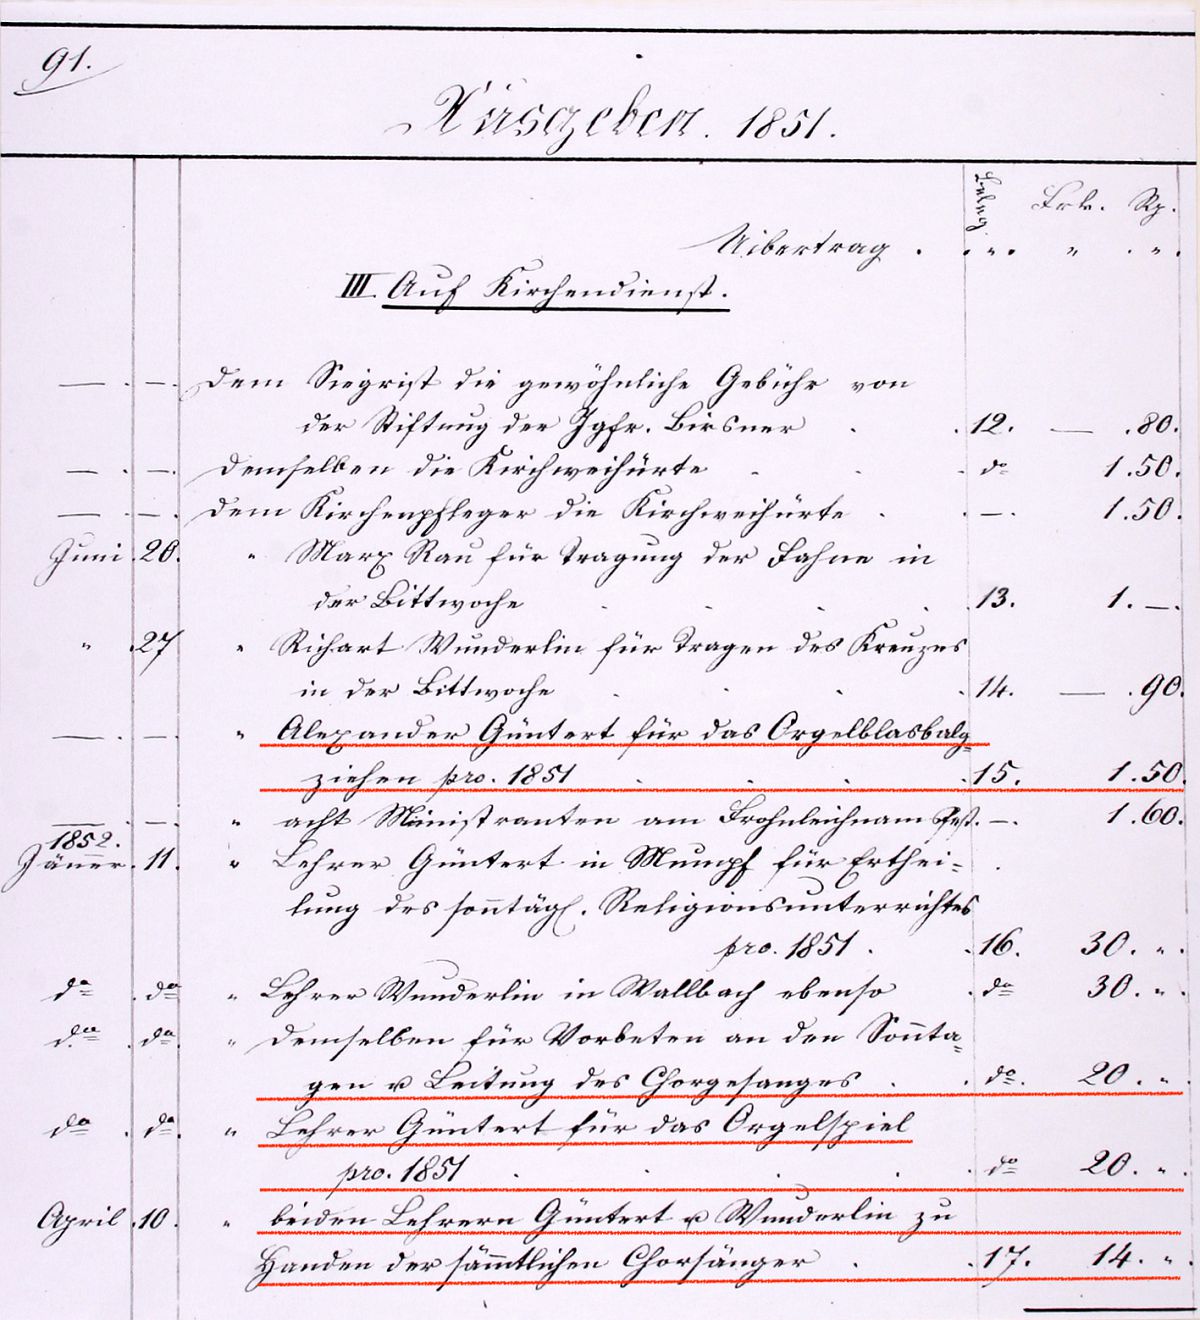 91.
Ausgeben. 1851.
Beleg. Frk. Rp.
Uibertrag . . „ . „ . „ .
III. Auf Kirchendienst.
— . — . Dem Siegrist die gewöhnliche Gebühr von
der Stiftung der Jgfr. Birsner . . 12. — . 80.
— . — . Demselben die Kirchweihürte . . . do 1 . 50.
— . — . Dem Kirchenpfleger die Kirchweihürte . . — . 1 . 50.
Juni . 20. „ Marx Rau für Tragung der Fahne in
der Bittwoche . . . . 13. 1 . — .
„ . 27 „ Richart Wunderlin für Tragen des Kreuzes
in der Bittwoche . . . . 14. — . 90.
— . — . „ Alexander Güntert für das Orgelblasbalg=
ziehen pro. 1851 . . . . 15. 1 . 50.
— . — . „ acht Ministranten am Frohnleichnams Fest . — . 1 . 60.
1852.
Jäner . 11. „ Lehrer Güntert in Mumpf für Erthei=
lung des sonntägl. Religionsunterrichtes
pro. 1851 . . 16. 30. „ .
do . do „ Lehrer Wunderlin in Wallbach ebenso . do 30. „ .
do . do „ Demselben für Vorbeten an den Sonnta=
gen u Leitung des Chorgesanges . . do . 20. „ .
do . do. „ Lehrer Güntert für das Orgelspiel
pro. 1851 . . . . . do 20. „ .
April . 10. „ beiden Lehrern Güntert u Wunderlin zu
Handen der sämmtlichen Chorsänger . . 17. 14. „